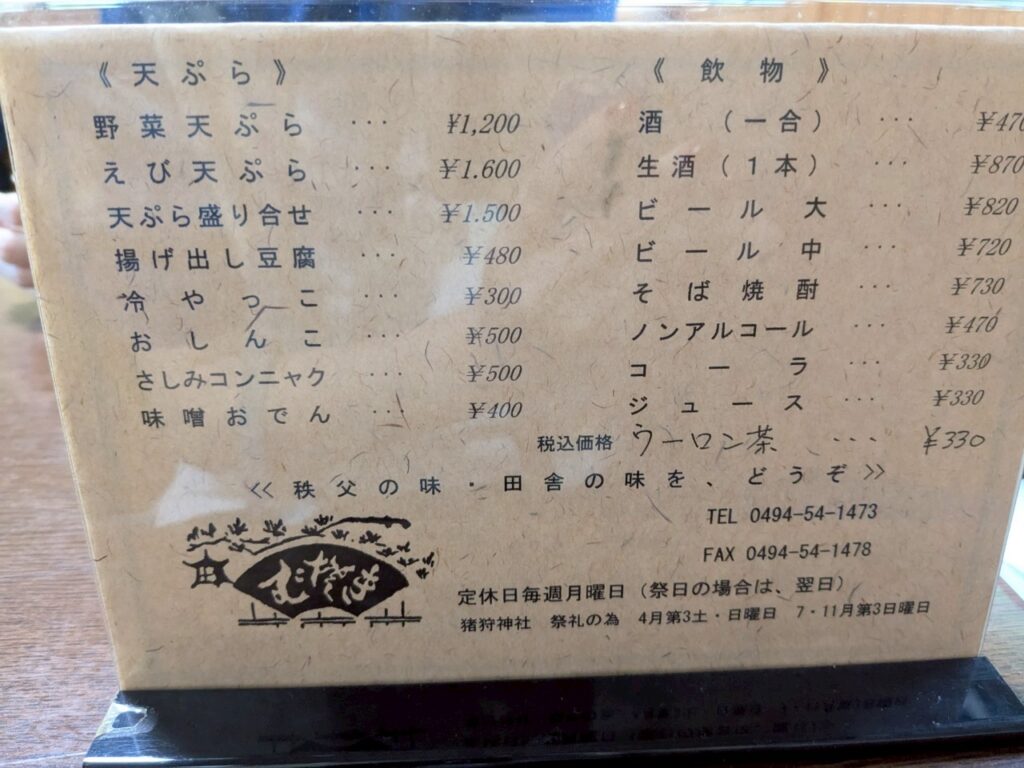 《天ぷら》
野菜天ぷら ・・・ ¥1,200
えび天ぷら ・・・ ¥1.600
天ぷら盛り合せ ・・・ ¥1.500
揚げ出し豆腐 ・・・ ¥480
冷やっこ ・・・ ¥300
おしんこ ・・・ ¥500
さしみコンニャク ・・・ ¥500
味噌おでん ・・・ ¥400
《飲物》
酒（一合） ・・・ ¥470
生酒（1本） ・・・ ¥870
ビール大 ・・・ ¥820
ビール中 ・・・ ¥720
そば焼酎 ・・・ ¥730
ノンアルコール ・・・ ¥470
コーラ ・・・ ¥330
ジュース ・・・ ¥330
税込価格 ウーロン茶 ・・・ ¥330
<<秩父の味・田舎の味を、どうぞ>>
TEL 0494-54-1473
FAX 0494-54-1478
定休日毎週月曜日（祭日の場合は、翌日）
猪狩神社 祭礼の為 4月第3土・日曜日 7・11月第3日曜日